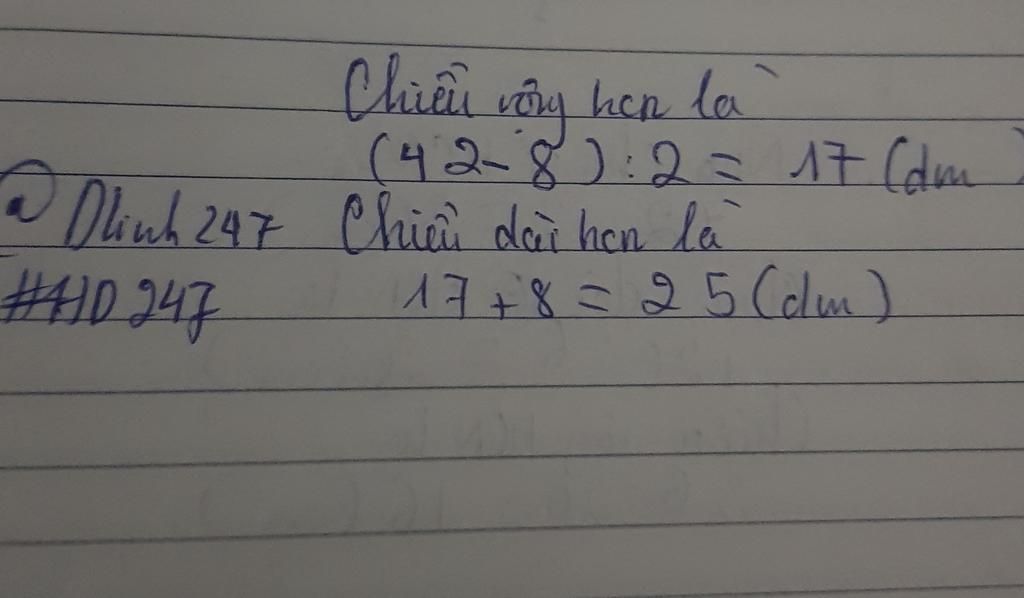 Chiều rộng hcn là
(42-8):2 = 17 (dm)
@Dlinh247 Chiều dài hcn là
#HD247 17+8=25(dm)